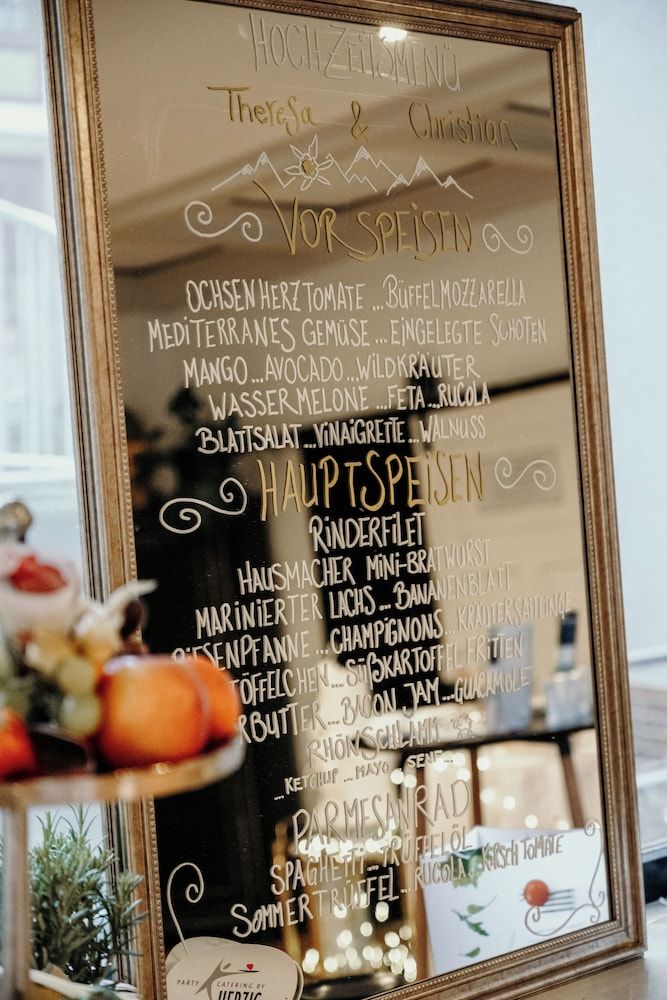 HOCHZEITSMENÜ
Theresa & Christian
VORSPEISEN
OCHSENHERZTOMATE ... BÜFFELMOZZARELLA
MEDITERRANES GEMÜSE ... EINGELEGTE SCHOTEN
MANGO ... AVOCADO ... WILDKRÄUTER
WASSERMELONE ... FETA ... RUCOLA
BLATTSALAT ... VINAIGRETTE ... WALNUSS
HAUPTSPEISEN
RINDERFILET
HAUSMACHER MINI-BRATWURST
MARINIERTER LACHS ... BANANENBLATT
IESENPFANNE ... CHAMPIGNONS ... KRÄUTERSAITLINGE
TÖFFELCHEN ... SÜßKARTOFFEL FRITTEN
RBUTTER ... BACON JAM ... GUACAMOLE
RHÖNSCHLAMM
... KETCHUP ... MAYO ... SENF ...
PARMESANRAD
SPAGHETTI ... TRÜFFELÖL
SOMMERTRÜFFEL ... RUCOLA ... KIRSCHTOMATE
PARTY CATERING BY
HERZIG